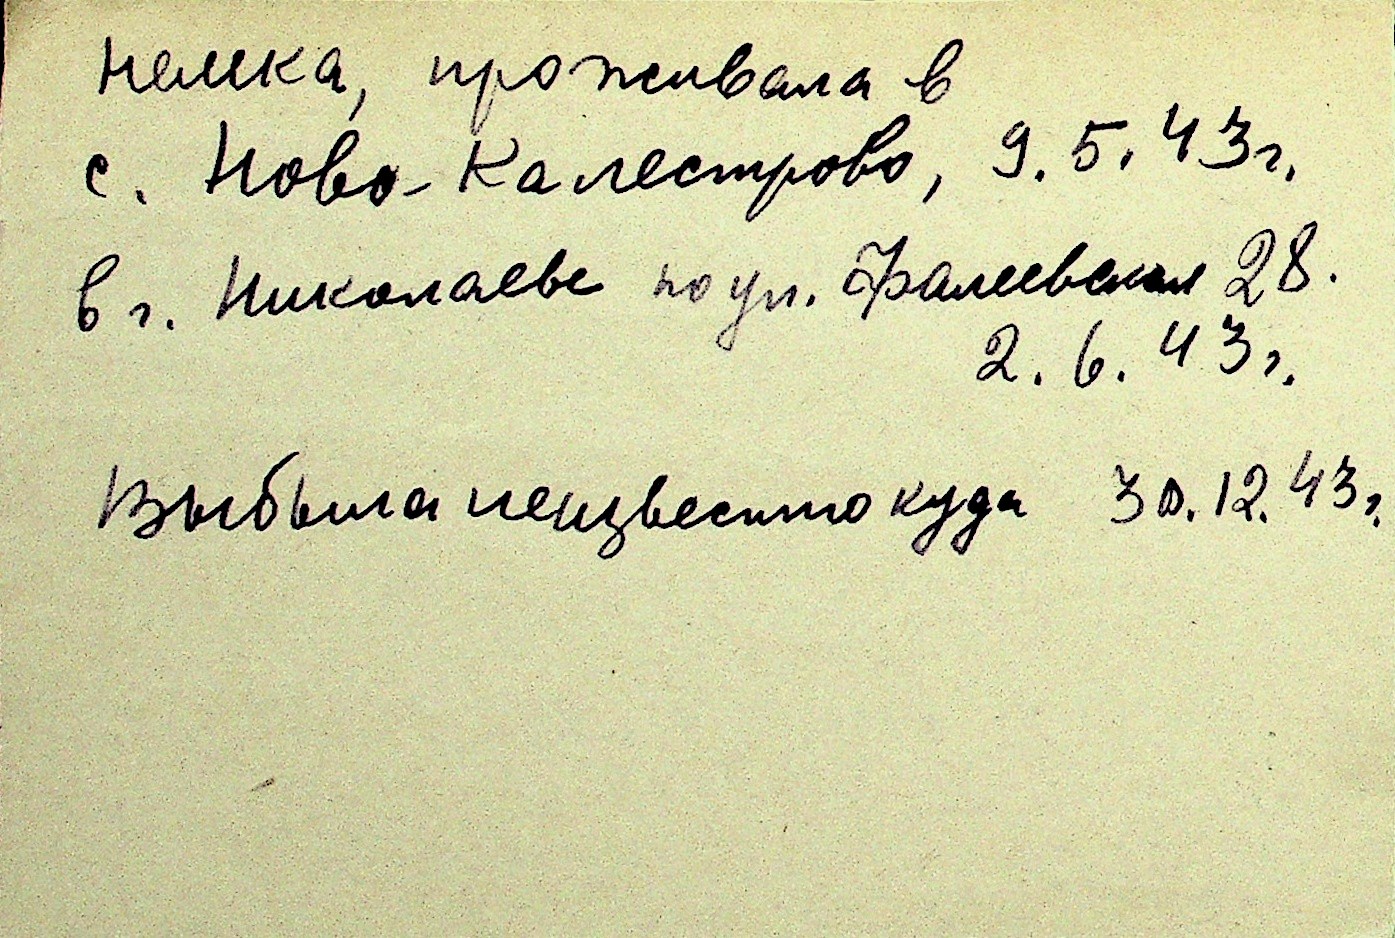 немка, проживала в
с. Ново-Калестрово, 9.5.43г.
в г. Николаеве по ул. Фалеевская 28.
2.6.43г.
Выбыла неизвестно куда 30.12.43г.